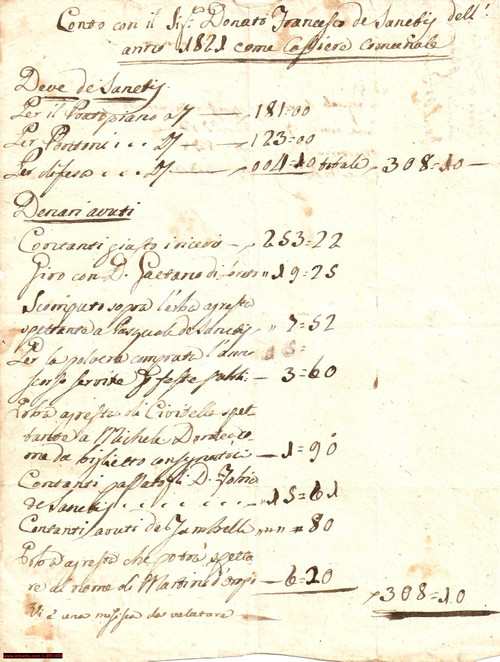 Conto con il Sig.r Donato Francesco de Sanctis dell'
anno 1821 come Cassiere Comunale
Deve de Sanctis
Per il Prato piano a 7 — 181=00
Per Pontoni . . . 123=00
Per difesa . . . 004=10 totale 308=10 —
Denari avuti
Contanti giusto i ricevi — 253=22
Giro con D. Gaetano di " 19=25
sopra l'erba agresta
spettante a Pasquale de Sanctis " 7=52
Per la polvere comprata l'anno
scorso servite feste — 3=60
Erba agresta di Civitella spet
tante a Michele
me da biglietto consegnatoci — 1=90
Contanti passatogli D. Fabio
de Sanctis . . . . . . . " 15=61
Contanti avuti da " " = 80
Erba agresta che potrà spetta
re al nome di Martino — 6=20
308=10
Vi è una da valutare